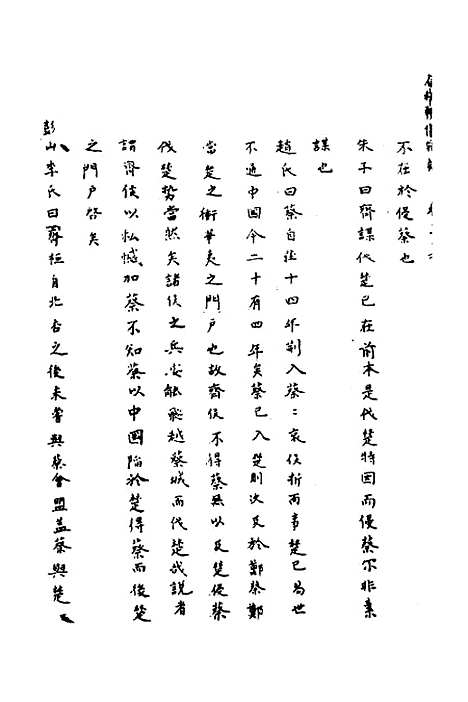 不在於侵蔡也
朱子曰齊謀伐楚已在前本是伐楚特因而侵蔡尔非素
謀也
趙氏曰蔡自莊十四年荆入蔡：哀侯折而事楚已為世
不通中囯今二十有四年矣蔡已入楚則次及於鄭蔡鄭
當楚之衝華夷之門户也故齊侯不得蔡無以及楚侵蔡
伐楚勢當然矣諸侯之兵安能飛越蔡城而伐楚哉説者
謂齊侯以私憾加蔡不知蔡以中囯陷於楚得蔡而後楚
之門户啓矣
彭山季氏曰齊桓自北杏之後未嘗與蔡會盟盖蔡與楚